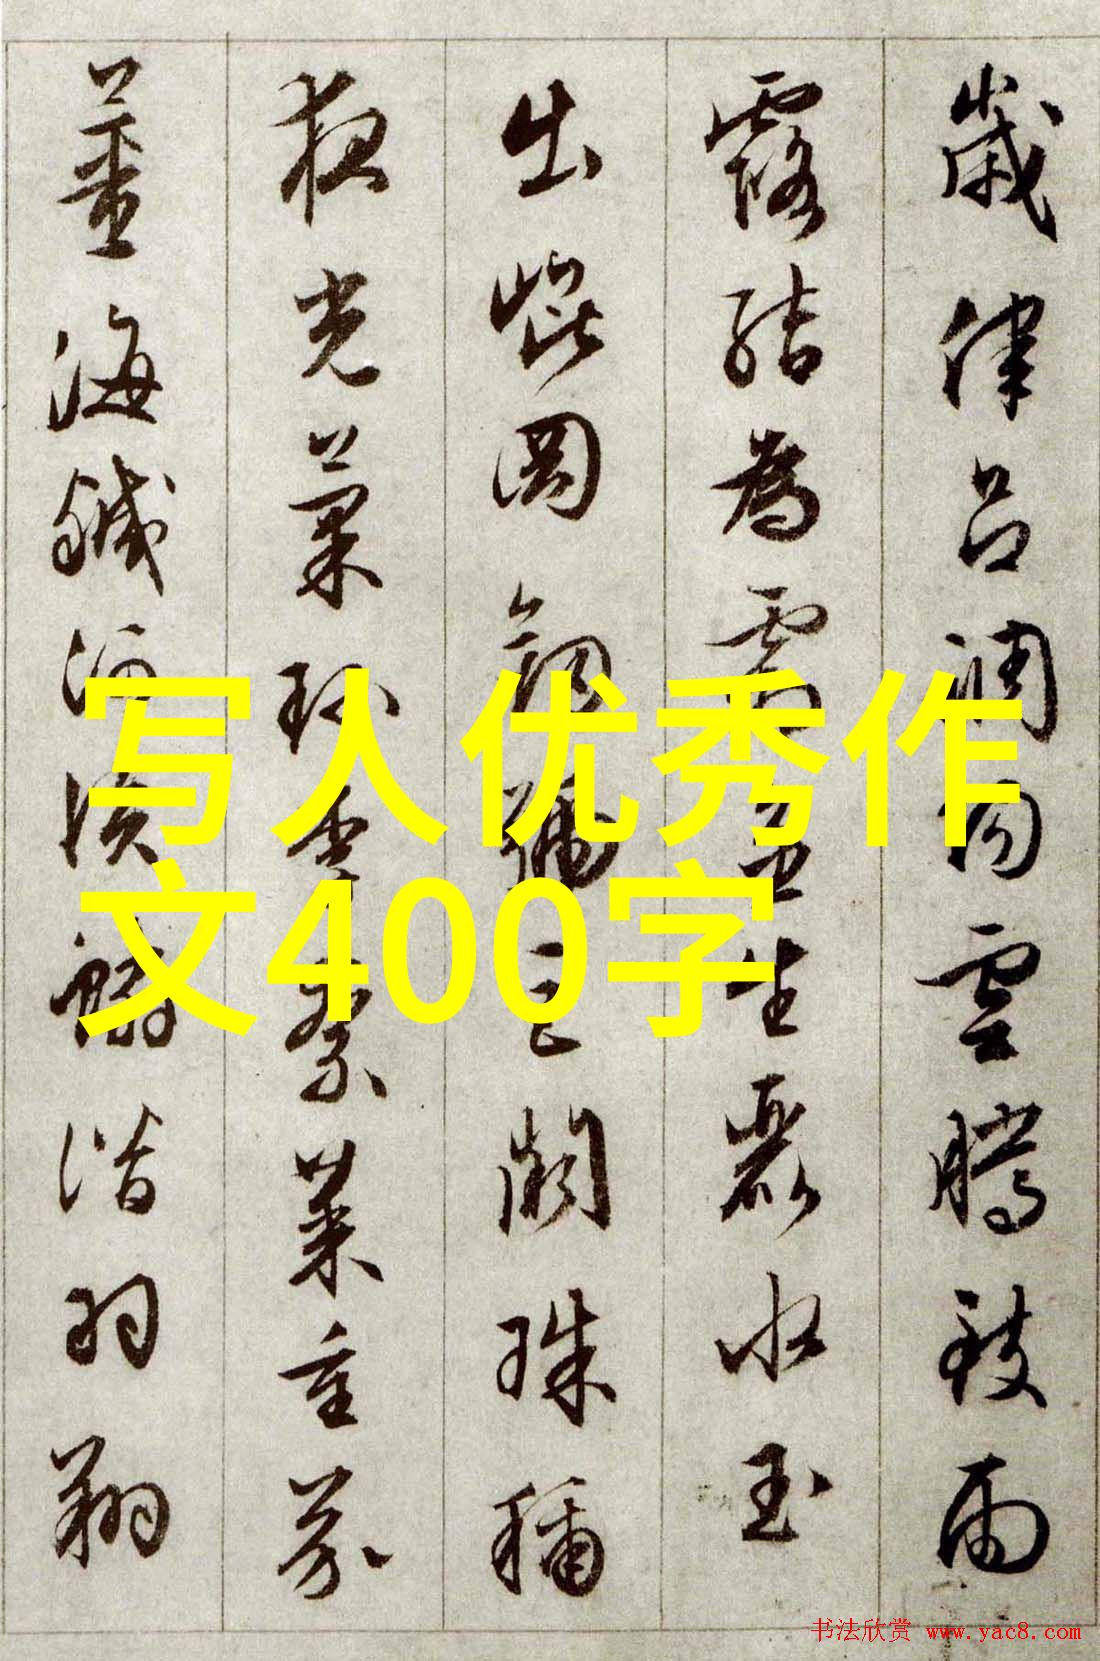 歲律呂調陽雲騰致雨
露結為霜金生麗水玉
出崐岡劍號巨闕珠稱
夜光菓珍李柰菜重芥
薑海鹹河淡鱗潛羽翔
写人优秀作
文400字
书法欣赏 www.yac8.com